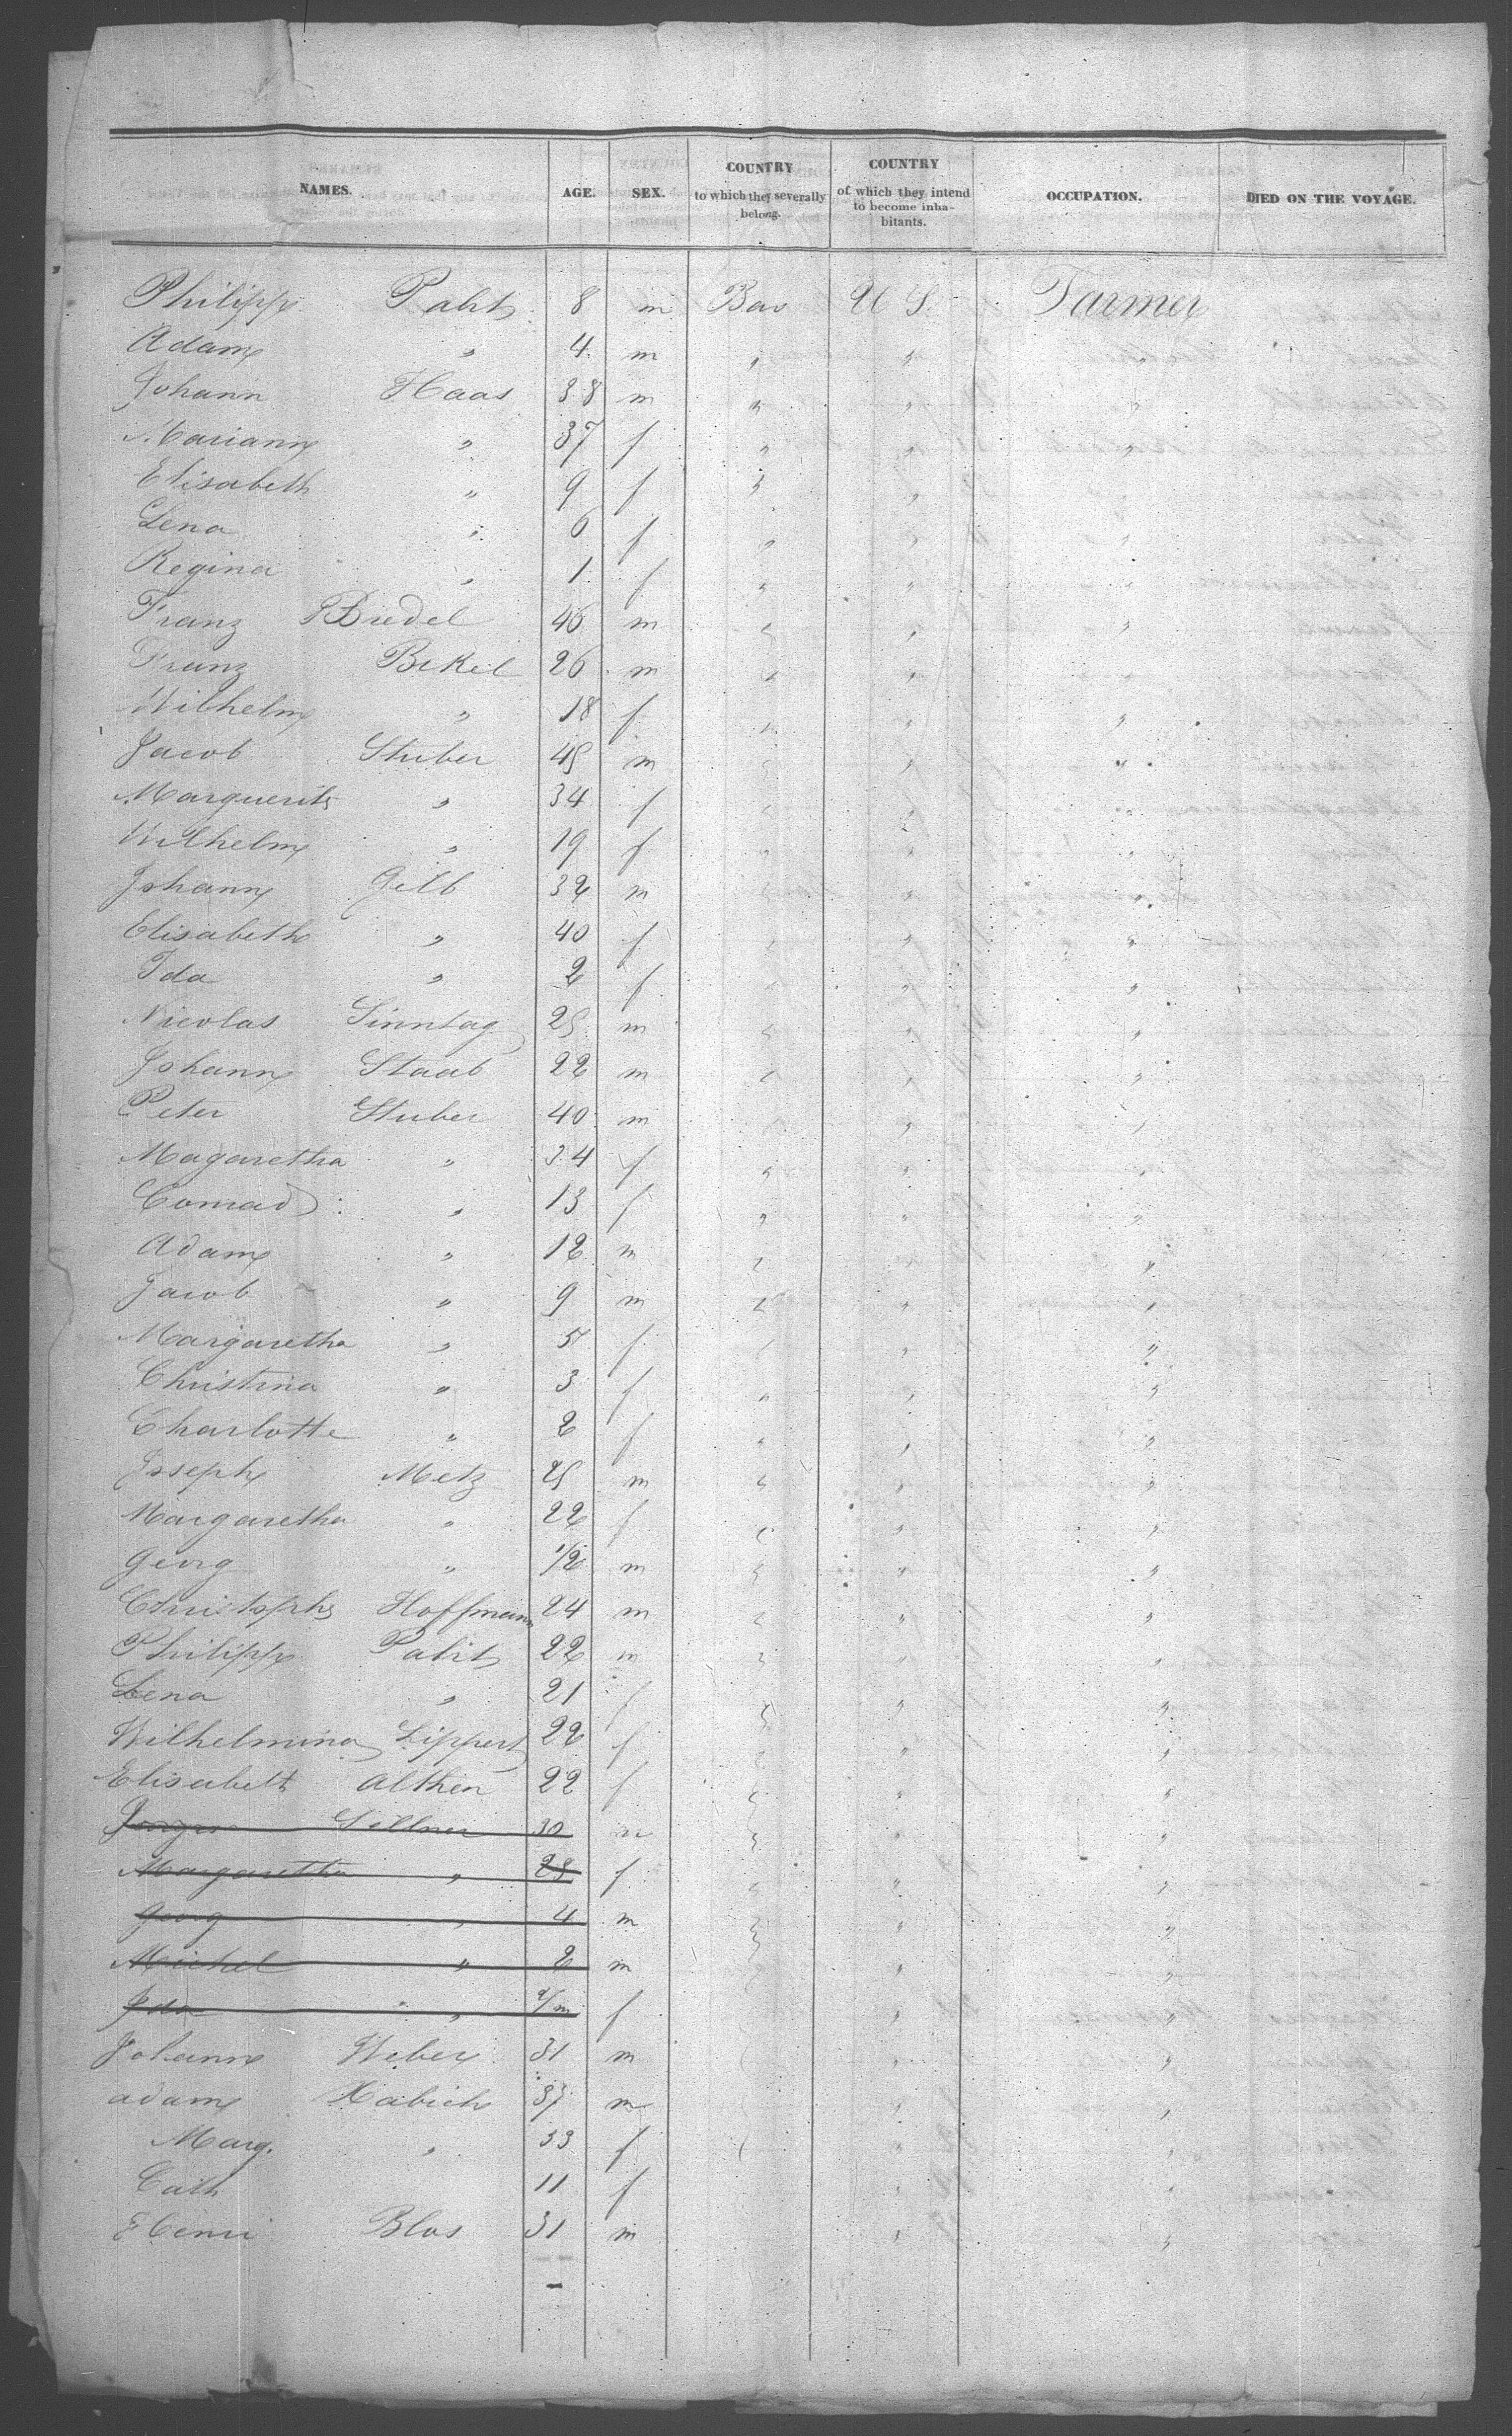 NAMES. AGE. SEX. COUNTRY to which they severally belong. COUNTRY of which they intend to become inhabitants. OCCUPATION. DIED ON THE VOYAGE.
Philipp 8 m Bav U S. Farmer
Adam " 4 m " " "
Johann Haas 38 m " " "
Mariann " 37 f " " "
Elisabeth " 9 f " "
Lena " 6 f " " "
Regina " 1 f " " "
Franz Bredel 46 m " " "
Franz Bikel 26 m " " "
Wilhelm " 18 f " " "
Jacob Stuber 45 m " " "
Marguerite " 34 f " " "
Wilhelm " 19 f " " "
Johann Gelb 32 m " " "
Elisabeth " 40 f " " "
Ida " 2 f " " "
Nicolas Sinntag 25 m " " "
Johann Staab 22 m " " "
Peter Stuber 40 m " " "
Magaretha " 34 f " " "
Conrad " 13 f " " "
Adam " 12 m " " "
Jacob " 9 m " " "
Margaretha " 5 f " " "
Christina " 3 f " " "
Charlotte " 2 f " " "
Joseph Metz 25 m " " "
Margaretha " 22 f " " "
Georg " 1/2 m " " "
Christoph Hoffmann 24 m " " "
Philipp 22 m " " "
Lena " 21 f " " "
Wilhelmina Lippert 22 f " " "
Elisabeth Althen 22 f " " "
Sellner 30 m " " "
Margaretha " 28 f " " "
Georg " 4 m " " "
Michel " 2 m " " "
Ida " f " "
Johann Weber 31 m " "
Adam Habich 37 m " "
Marg. " 33 f " "
Cath 11 f " "
Henri Blos 31 m " "